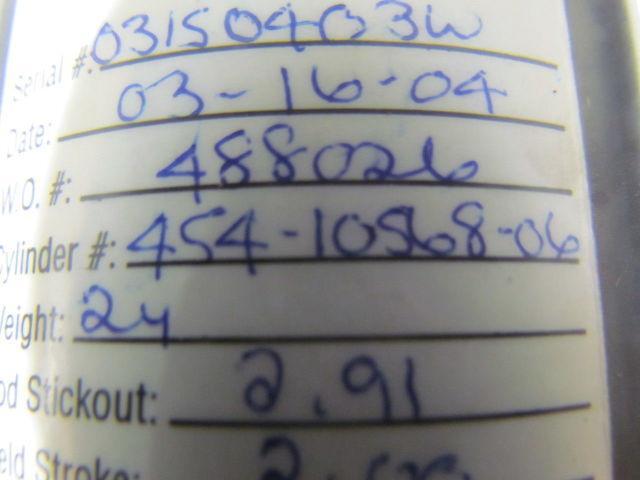 Serial #: 03150403W
Date: 03-16-04
W.O. #: 488026
Cylinder #: 454-10568-06
Weight: 24
Stickout: 2.91
Stroke: